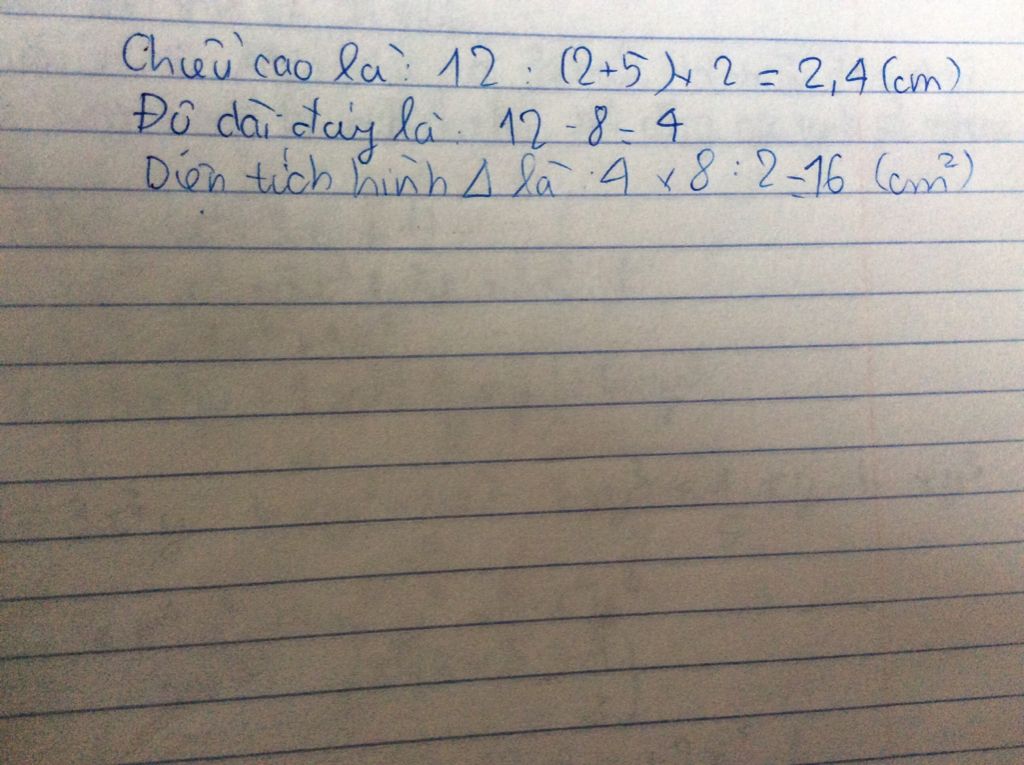 Chiều cao là: 12 : (2+5) x 2 = 2,4 (cm)
Độ dài đáy là: 12 - 8 = 4
Diện tích hình Δ là: 4 x 8 : 2 = 16 (cm²)